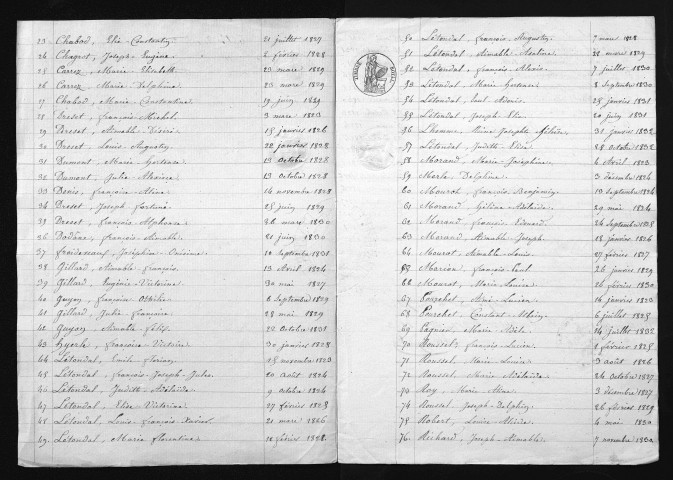 23 Chabod, Elie-Constantin 21 juillet 1827
24 Chagrot, Joseph-Eugène 2 février 1828
25 Carrez, Marie Elisabeth 23 mars 1829
26 Carrez, Marie Delphine 23 mars 1829
27 Chabod, Marie Constantine 19 juin 1829
28 Dresset, François-Michel 3 mars 1823
29 Dresset, Aimable Désiré 15 janvier 1826
30 Dresset, Louis Augustin 22 janvier 1828
31 Dumont, Marie Hortense 13 Octobre 1828
32 Dumont, Julie 13 Octobre 1828
33 Denis, Françoise Aline 14 novembre 1828
34 Dresset, Joseph Fortuné 25 juin 1829
35 Dresset, François-Alphonse 26 mars 1830
36 François Aimable 21 juin 1830
37 Joséphine 10 Septembre 1831
38 Gillard, Aimable François 13 Avril 1824
39 Gillard, Eugénie-Victorine 30 mai 1827
40 Guyon, Françoise 6 Septembre 1829
41 Gillard, Julie Françoise 28 mai 1829
42 Guyon, Aimable Félix 22 Octobre 1831
43 Françoise Victoire 30 janvier 1828
44 Létondal, Emile Florian 15 novembre 1823
45 Létondal, François-Joseph-Jules 20 août 1824
46 Létondal, Judith-Adélaïde 9 octobre 1824
47 Létondal, Elise Victorine 27 février 1825
48 Létondal, Louis-François-Xavier 21 mars 1826
49 Létondal, Marie Florentine 12 février 1828
50 Létondal, François-Augustin 7 mars 1828
51 Létondal, Aimable 22 mars 1829
52 Létondal, François-Alexis 7 juillet 1830
53 Létondal Marie Hortense 8 Septembre 1830
54 Létondal, Paul Adonis 25 janvier 1831
55 Létondal, Joseph Elie 20 juin 1831
56 Lhomme, Aimé Joseph 31 janvier 1832
57 Létondal, Judith Elisa 28 Octobre 1832
58 Morand, Marie Joséphine 6 Avril 1823
59 Merle, Delphine 3 décembre 1824
60 Mourot, François Benjamin 19 Septembre 1824
61 Morand, Adélaïde 29 mai 1824
62 Morand, François Edouard 24 Septembre 1825
63 Morand, Aimable Joseph 18 janvier 1826
64 Mourot, Aimable-Louis 27 février 1827
65 Marion, François-Paul 26 janvier 1829
66 Mourot, Marie Louise 26 février 1830
67 Pourchet, Aimé-Lucien 16 janvier 1823
68 Pourchet, Constant 6 juillet 1825
69 Pagnier, Marie Adèle 14 juillet 1832
70 Roussel, François-Lucien 1 février 1825
71 Roussel, Marie Louise 3 août 1826
72 Roussel, Marie Adélaïde 24 Octobre 1827
73 Roy, Marie Aline 3 décembre 1827
74 Roussel, Joseph-Delphin 26 février 1829
75 Robert, Louise 4 mai 1830
76 Richard, Joseph-Aimable 7 novembre 1830